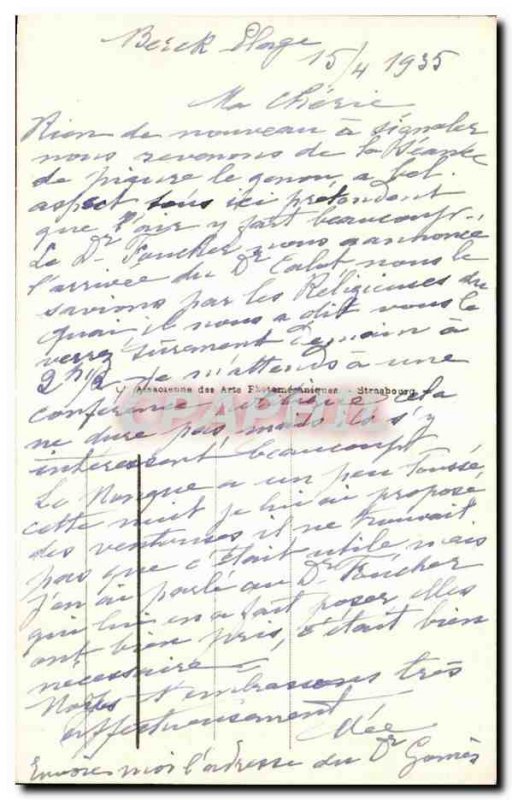 Berck Plage
15/4 1935
Ma Chérie
Rien de nouveau à signaler
nous revenons de la Séance
de piqure le genou a bel
aspect tous ici prétendent
que l'air y fait beaucoup.
Le Dr Foucher nous a annoncé
l'arrivée du Dr Calot nous le
savions par les Religieuses du
quai il nous a dit vous le
verrez sûrement demain à
2h1/2 Je m'attends à une
Alsacienne des Arts Photomécaniques - Strasbourg
conférence cela
ne dure pas, mais ils s'y
intéressent beaucoup
Le a un peu toussé
cette nuit je lui ai proposé
des ventouses il ne trouvait
pas que c'était utile, mais
j'en ai parlé au Dr Foucher
qui lui en a fait poser elles
ont bien pris, c'était bien
nécessaire
Nous t'embrassons très
affectueusement
Envoies moi l'adresse du Dr
CPAPHIL